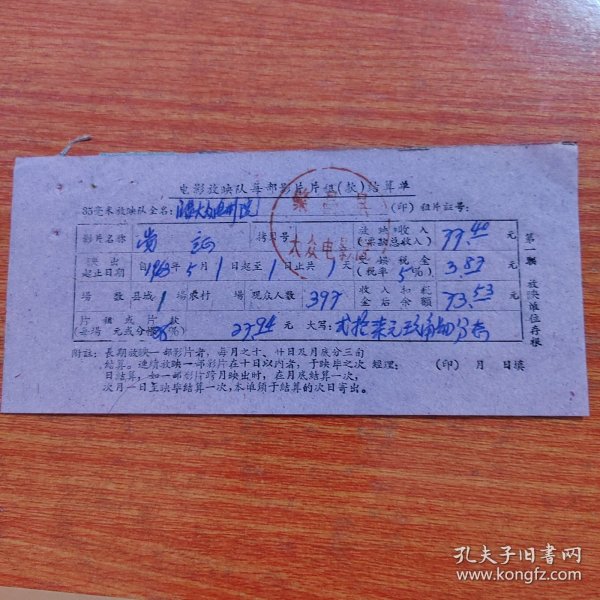 电影放映队每部影片片租(款)结算单
35毫米放映队全名: 大众电影院 (印) 租片证号:
影片名称 拷贝号 放映收入(票款总收入) 77.40 元
映出起止日期 自1963年5月1日起至1日止共1天 扣税金(税率5%) 3.87 元
场数 县城1场农村 场 观众人数 397 收入扣税金后余额 73.53 元
片租或片款(每场 元或分成38%) 27.94 元 大写:
附注: 长期放映一部影片者,每月之十、廿日及月底分三向
结算。连续放映一部影片在十日以内者,于映毕之次 经理: (印) 月 日填
日结算,如一部影片跨月映出时,在月底结算一次,
次月一日至映毕结算一次,本单须于结算的次日寄出。
第一联 放映单位存根
大众电影院
孔夫子旧书网
www.kongfz.com